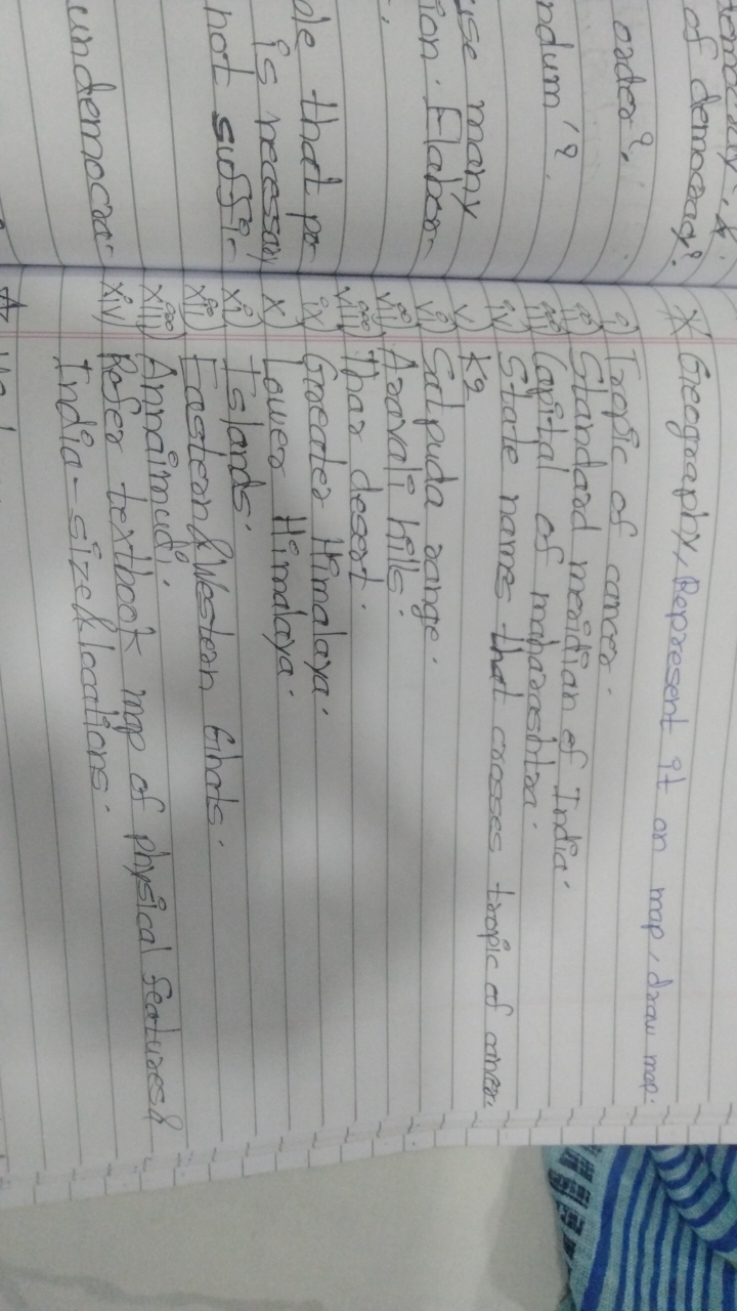 of democracy?
order?
ndum'?
use many
ion. Elabor-
ole that po-
is necessary
not suffi-
undemocra-
* Geography, Represent it on map, draw map.
i) Tropic of cancer.
ii) Standard meridian of India.
iii) Capital of maharashtra.
iv) State names that crosses tropic of cancer.
v) K2
vi) Satpuda range.
vii) Aravali hills.
viii) Thar desert.
ix) Greater Himalaya.
x) Lower Himalaya.
xi) Islands.
xii) Eastern & Western Ghats.
xiii) Annaimudi.
xiv) Refer textbook map of physical features &
India - size & locations.